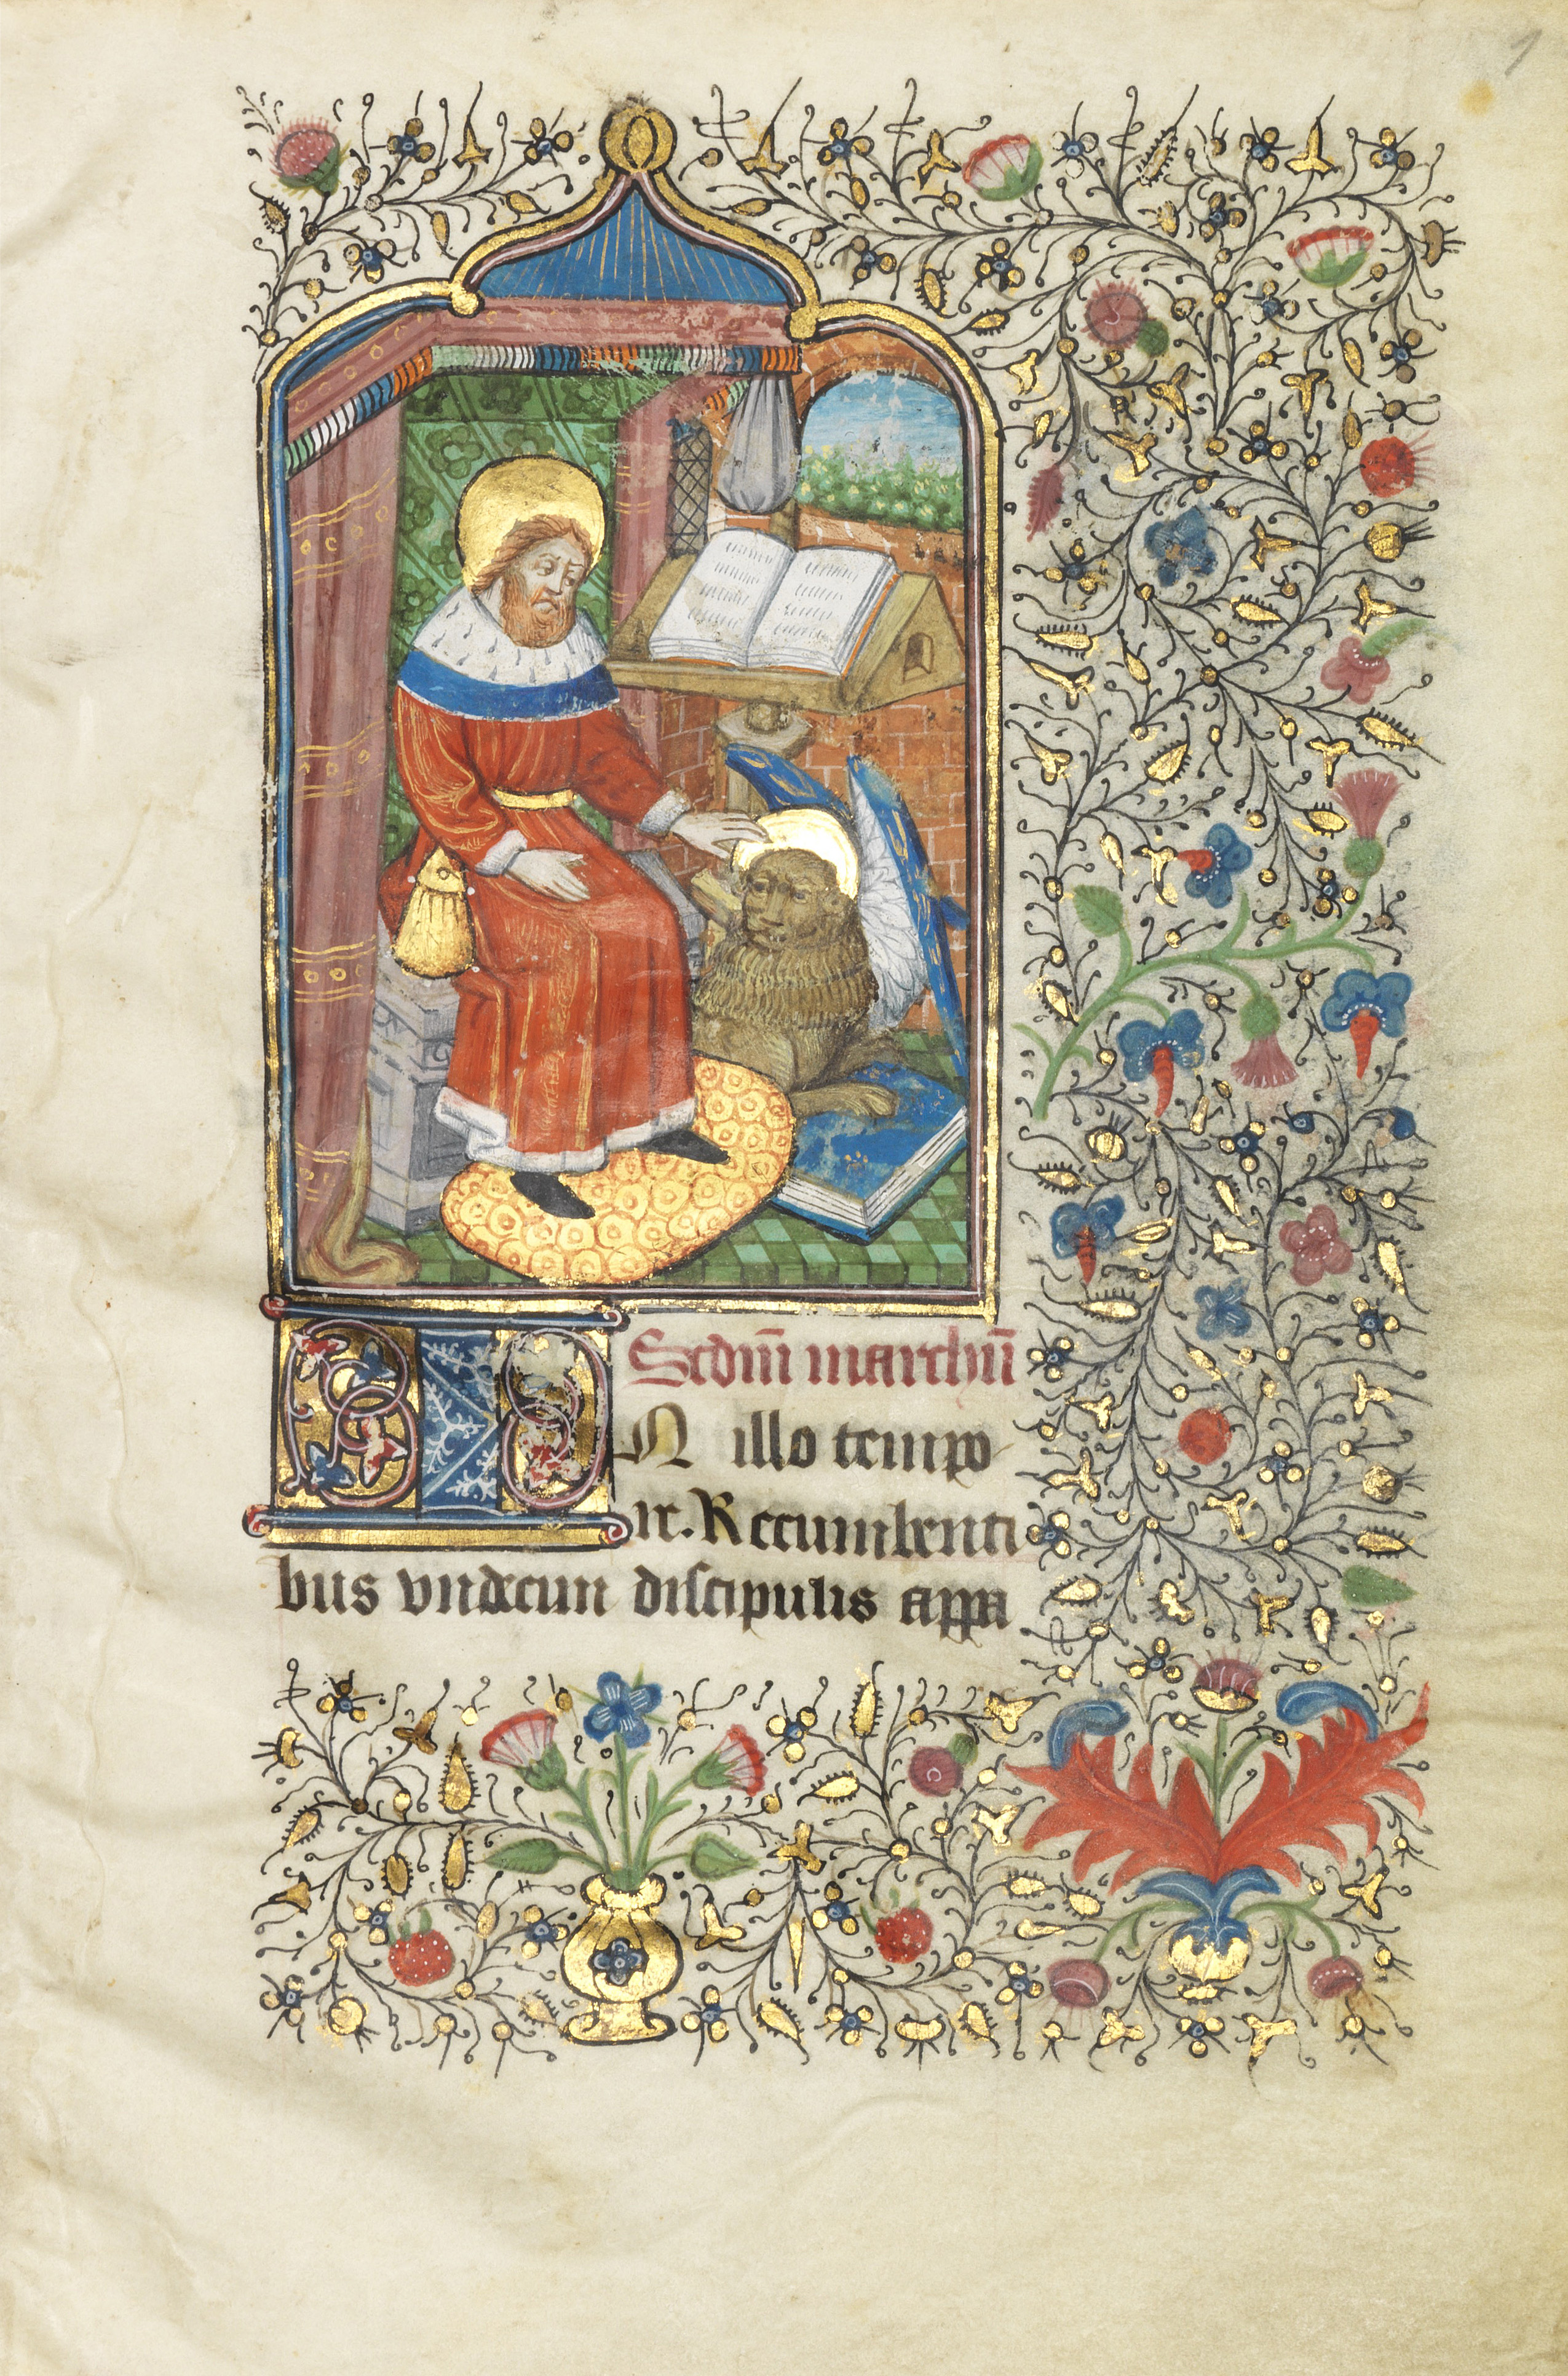 Scdm̄ marchū
IN illo tempo
re. Recumbenti
bus vndecim discipulis appa
1